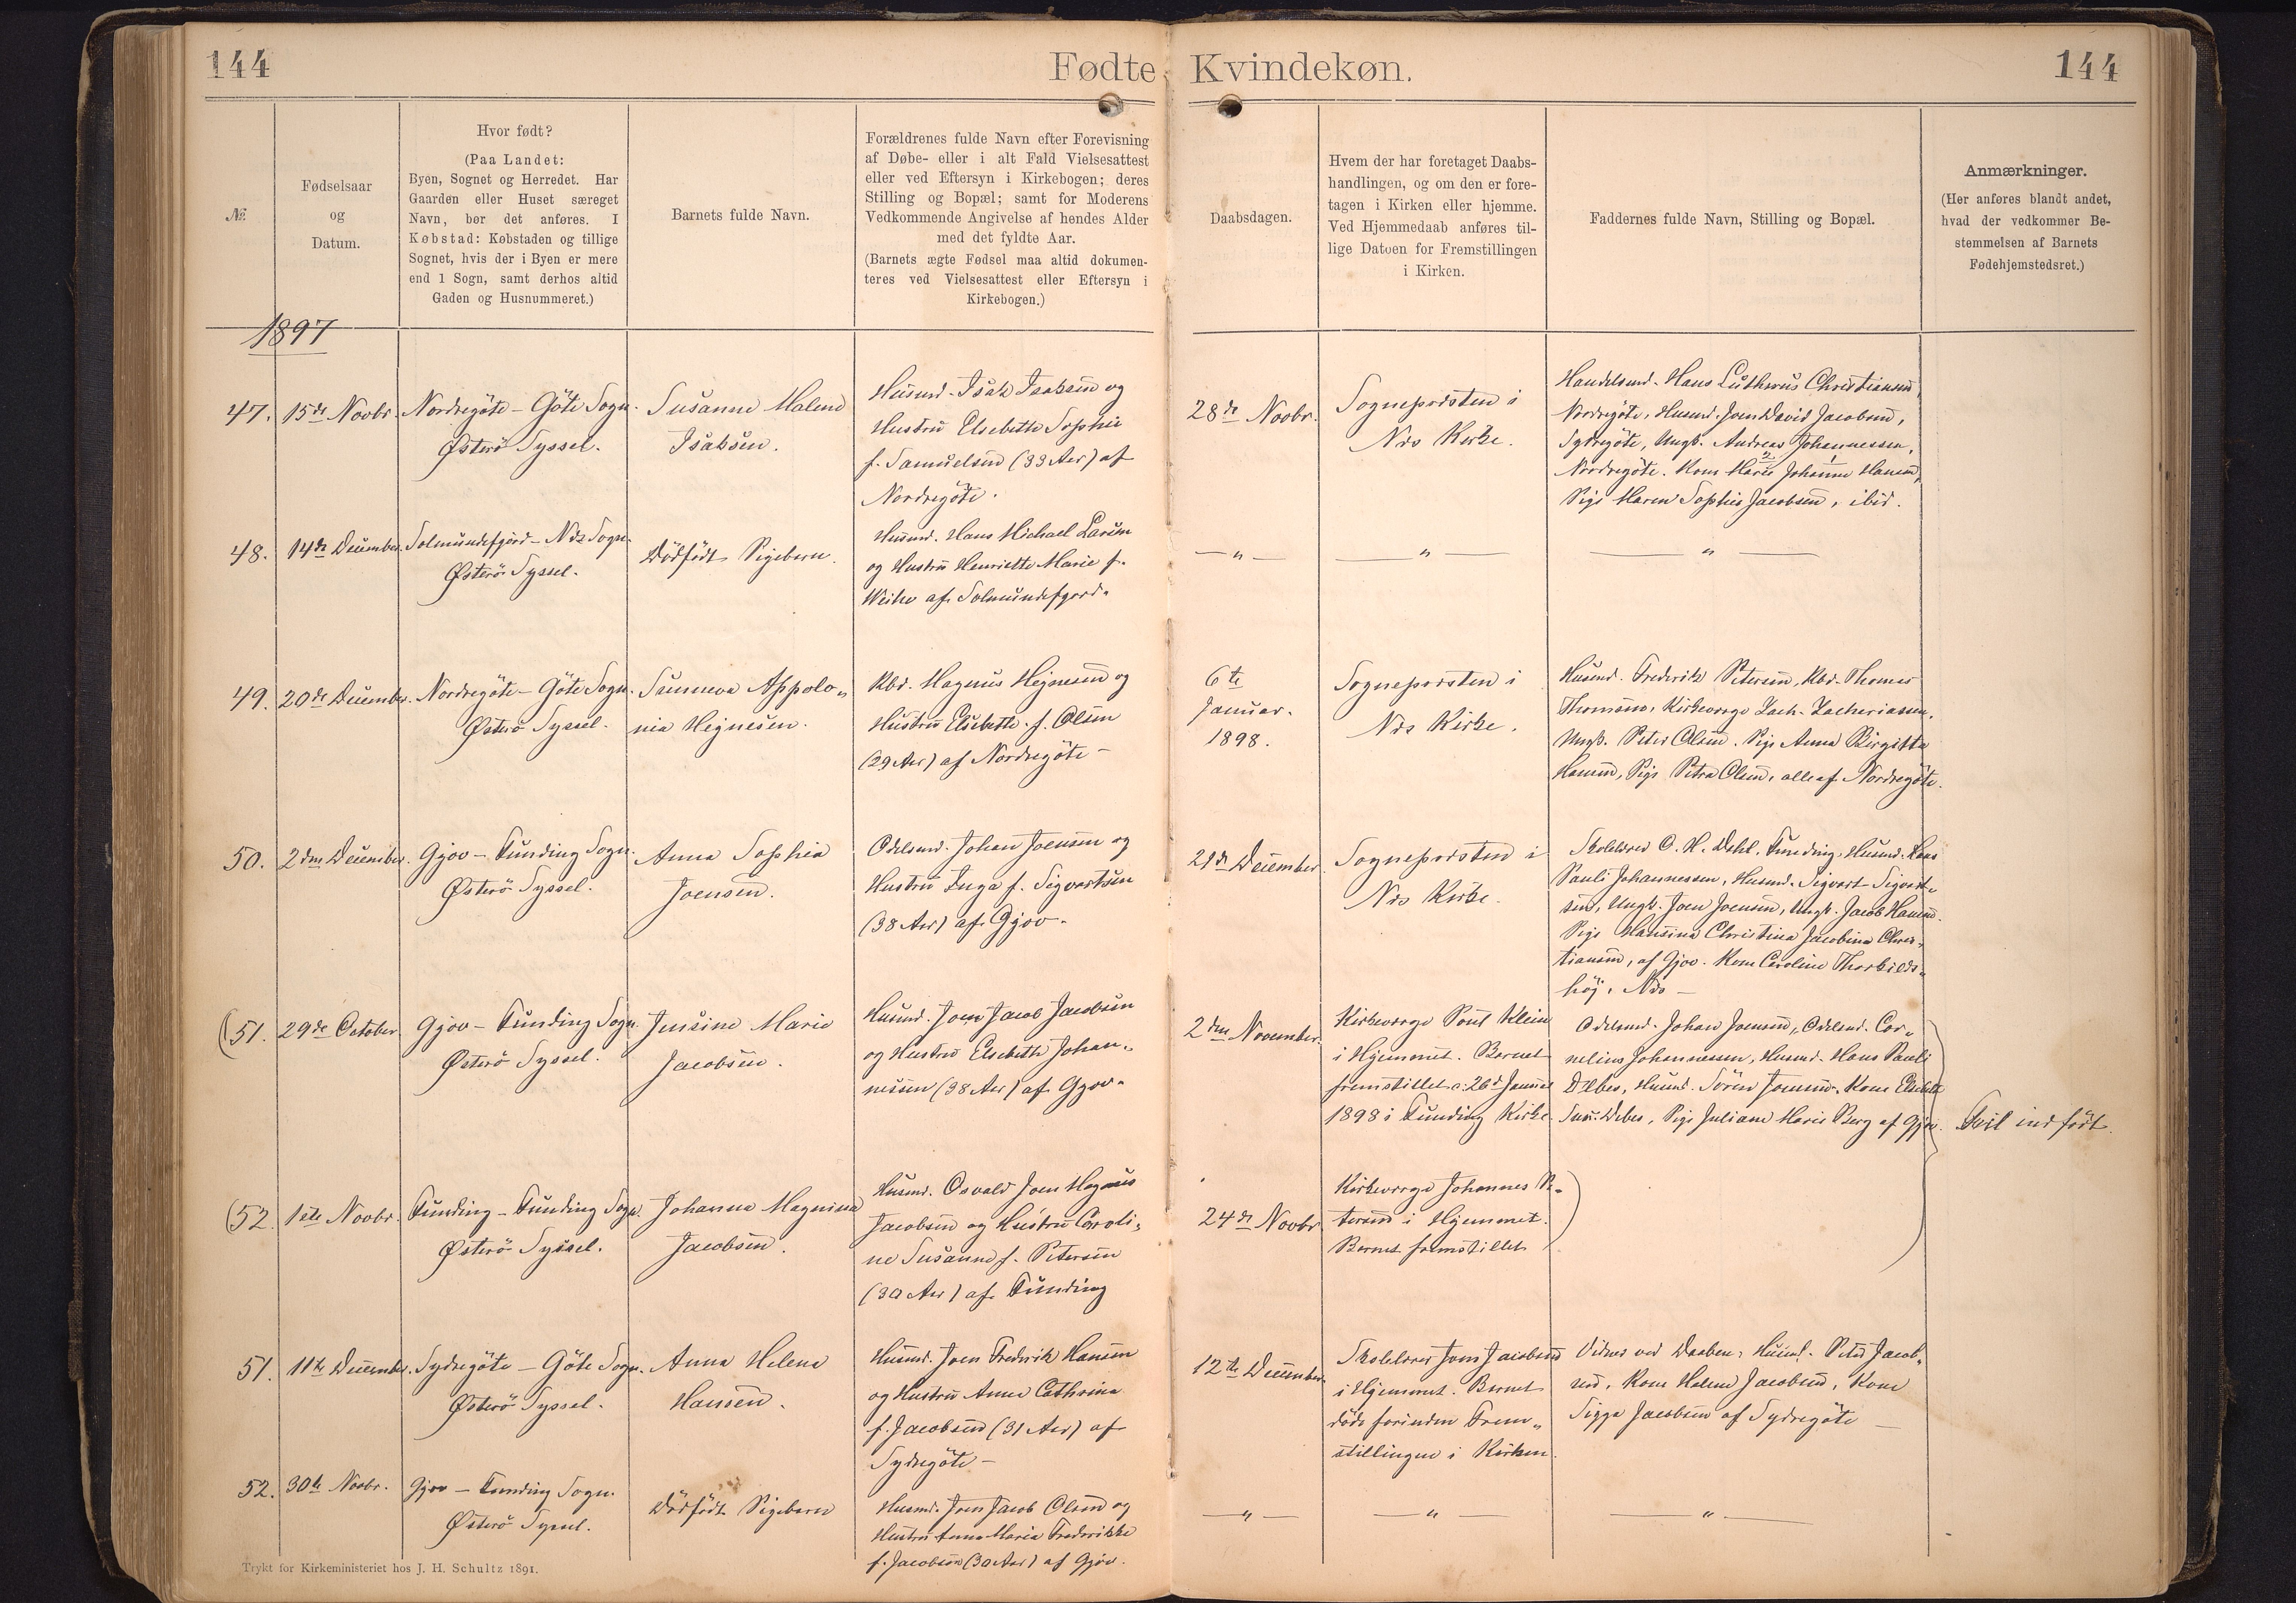 144
Fødte Kvindekøn.
144
№
Fødselsaar
og
Datum.
Hvor født?
(Paa Landet:
Byen, Sognet og Herredet. Har
Gaarden eller Huset særeget
Navn, bør det anføres. I
Købstad: Købstaden og tillige
Sognet, hvis der i Byen er mere
end 1 Sogn, samt derhos altid
Gaden og Husnummeret.)
Barnets fulde Navn.
Forældrenes fulde Navn efter Forevisning
af Døbe- eller i alt Fald Vielsesattest
eller ved Eftersyn i Kirkebogen; deres
Stilling og Bopæl; samt for Moderens
Vedkommende Angivelse af hendes Alder
med det fyldte Aar.
(Barnets ægte Fødsel maa altid dokumen-
teres ved Vielsesattest eller Eftersyn i
Kirkebogen.)
Daabsdagen.
Hvem der har foretaget Daabs-
handlingen, og om den er fore-
tagen i Kirken eller hjemme.
Ved Hjemmedaab anføres til-
lige Datoen for Fremstillingen
i Kirken.
Faddernes fulde Navn, Stilling og Bopæl.
Anmærkninger.
(Her anføres blandt andet,
hvad der vedkommer Be-
stemmelsen af Barnets
Fødehjemstedsret.)
1897
47.
15de Novbr.
Nordregöte - Göte Sogn.
Österö Syssel.
Susanne Malene
Isaksen.
Husmd. Isak Isaksen og
Hustru Elsebeth Sophie
f. Samuelsen (33 Aar) af
Nordregöte.
28de Novbr.
Sognepræsten i
Næs Kirke.
Handelsmd. Hans Lutherus Christiansen,
Nordregöte, Husmd. Joen David Jacobsen,
Sydregöte, Ungk. Andreas Johannessen,
Nordregöte. Kone Marie Johanne Hansen,
Pige Maren Sophie Jacobsen, ibid.
48.
14de December.
Solmundefjord - Næs Sogn.
Österö Syssel.
Dödfödt Pigebarn.
Husmd. Hans Michael Larsen
og Hustru Henriette Marie f.
Weihe af Solmundefjord.
— " —
— " —
— " —
49.
20de December.
Nordregöte - Göte Sogn.
Österö Syssel.
Sunneva Appolo„
nia Hejnesen.
Kbd. Magnus Hejnesen og
Hustru Elsebeth f. Olsen
(29 Aar) af Nordregöte -
6te
Januar.
1898.
Sognepræsten i
Næs Kirke.
Husmd. Frederik Petersen, Kbd. Thomas
Thomsen, Kirkeværge Zach. Zachariasen.
Ungk. Peter Olsen. Pige Anna Birgitta
Hansen, Pige Petra Olsen, alle af Nordregöte.
50.
2den December.
Gjov - Funding Sogn.
Österö Syssel.
Anna Sophia
Joensen.
Odelsmd. Johan Joensen og
Hustru Inga f. Sigvartsen
(38 Aar) af Gjov.
21de December
Sognepræsten i
Næs Kirke.
Skolelærer O. H. Dahl, Funding, Husmd. Hans
Pauli Johannessen, Husmd. Sigvart Sigvart„
sen, Ungk. Joen Joensen, Ungk. Jacob Hansen.
Pige Hansina Christina Jacobina Chris„
tiansen, af Gjov. Kone Caroline Thorkilds„
höj, Næs —
(51.
29de October.
Gjov - Funding Sogn.
Österö Syssel.
Jensine Marie
Jacobsen.
Husmd. Joen Jacob Jacobsen
og Hustru Elsebeth Johan„
nesen (38 Aar) af Gjov.
2den November.
Kirkeværge Poul Klein
i Hjemmet. Barnet
fremstillet d. 26de Januar
1898 i Funding Kirke.
Odelsmd. Johan Joensen, Odelsmd. Cor„
nelius Johannessen, Husmd. Hans Pauli
Debes, Husmd. Sören Joensen. Kone Elsebeth
Sus. Debes, Pige Juliane Marie Berg af Gjov.
Feil indfört.
(52.
1ste Novbr.
Funding - Funding Sogn.
Österö Syssel.
Johanne Magnina
Jacobsen.
Husmd. Osvald Joen Magnus
Jacobsen og Hustru Caroli„
ne Susanne f. Petersen
(30 Aar) af Funding
24de Novbr.
Kirkeværge Johannes Pe„
tersen i Hjemmet.
Barnet fremstillet
51.
11te December.
Sydregöte - Göte Sogn.
Österö Syssel.
Anna Helena
Hansen.
Husmd. Joen Frederik Hansen
og Hustru Anne Cathrina
f. Jacobsen (31 Aar) af
Sydregöte -
12te December.
Skolelærer Joen Jacobsen
i Hjemmet. Barnet
döde forinden Frem„
stillingen i Kirken.
Vidner ved Daaben: Husmd. Peter Jacob„
sen, Kone Helene Jacobsen, Kone
Sigga Jacobsen af Sydregöte —
52.
30te Novbr.
Gjov - Funding Sogn.
Österö Syssel.
Dödfödt Pigebarn
Husmd. Joen Jacob Olsen og
Hustru Anna Maria Frederikke
f. Jacobsen (30 Aar) af Gjov.
— " —
— " —
— " —
Trykt for Kirkeministeriet hos J. H. Schultz 1891.